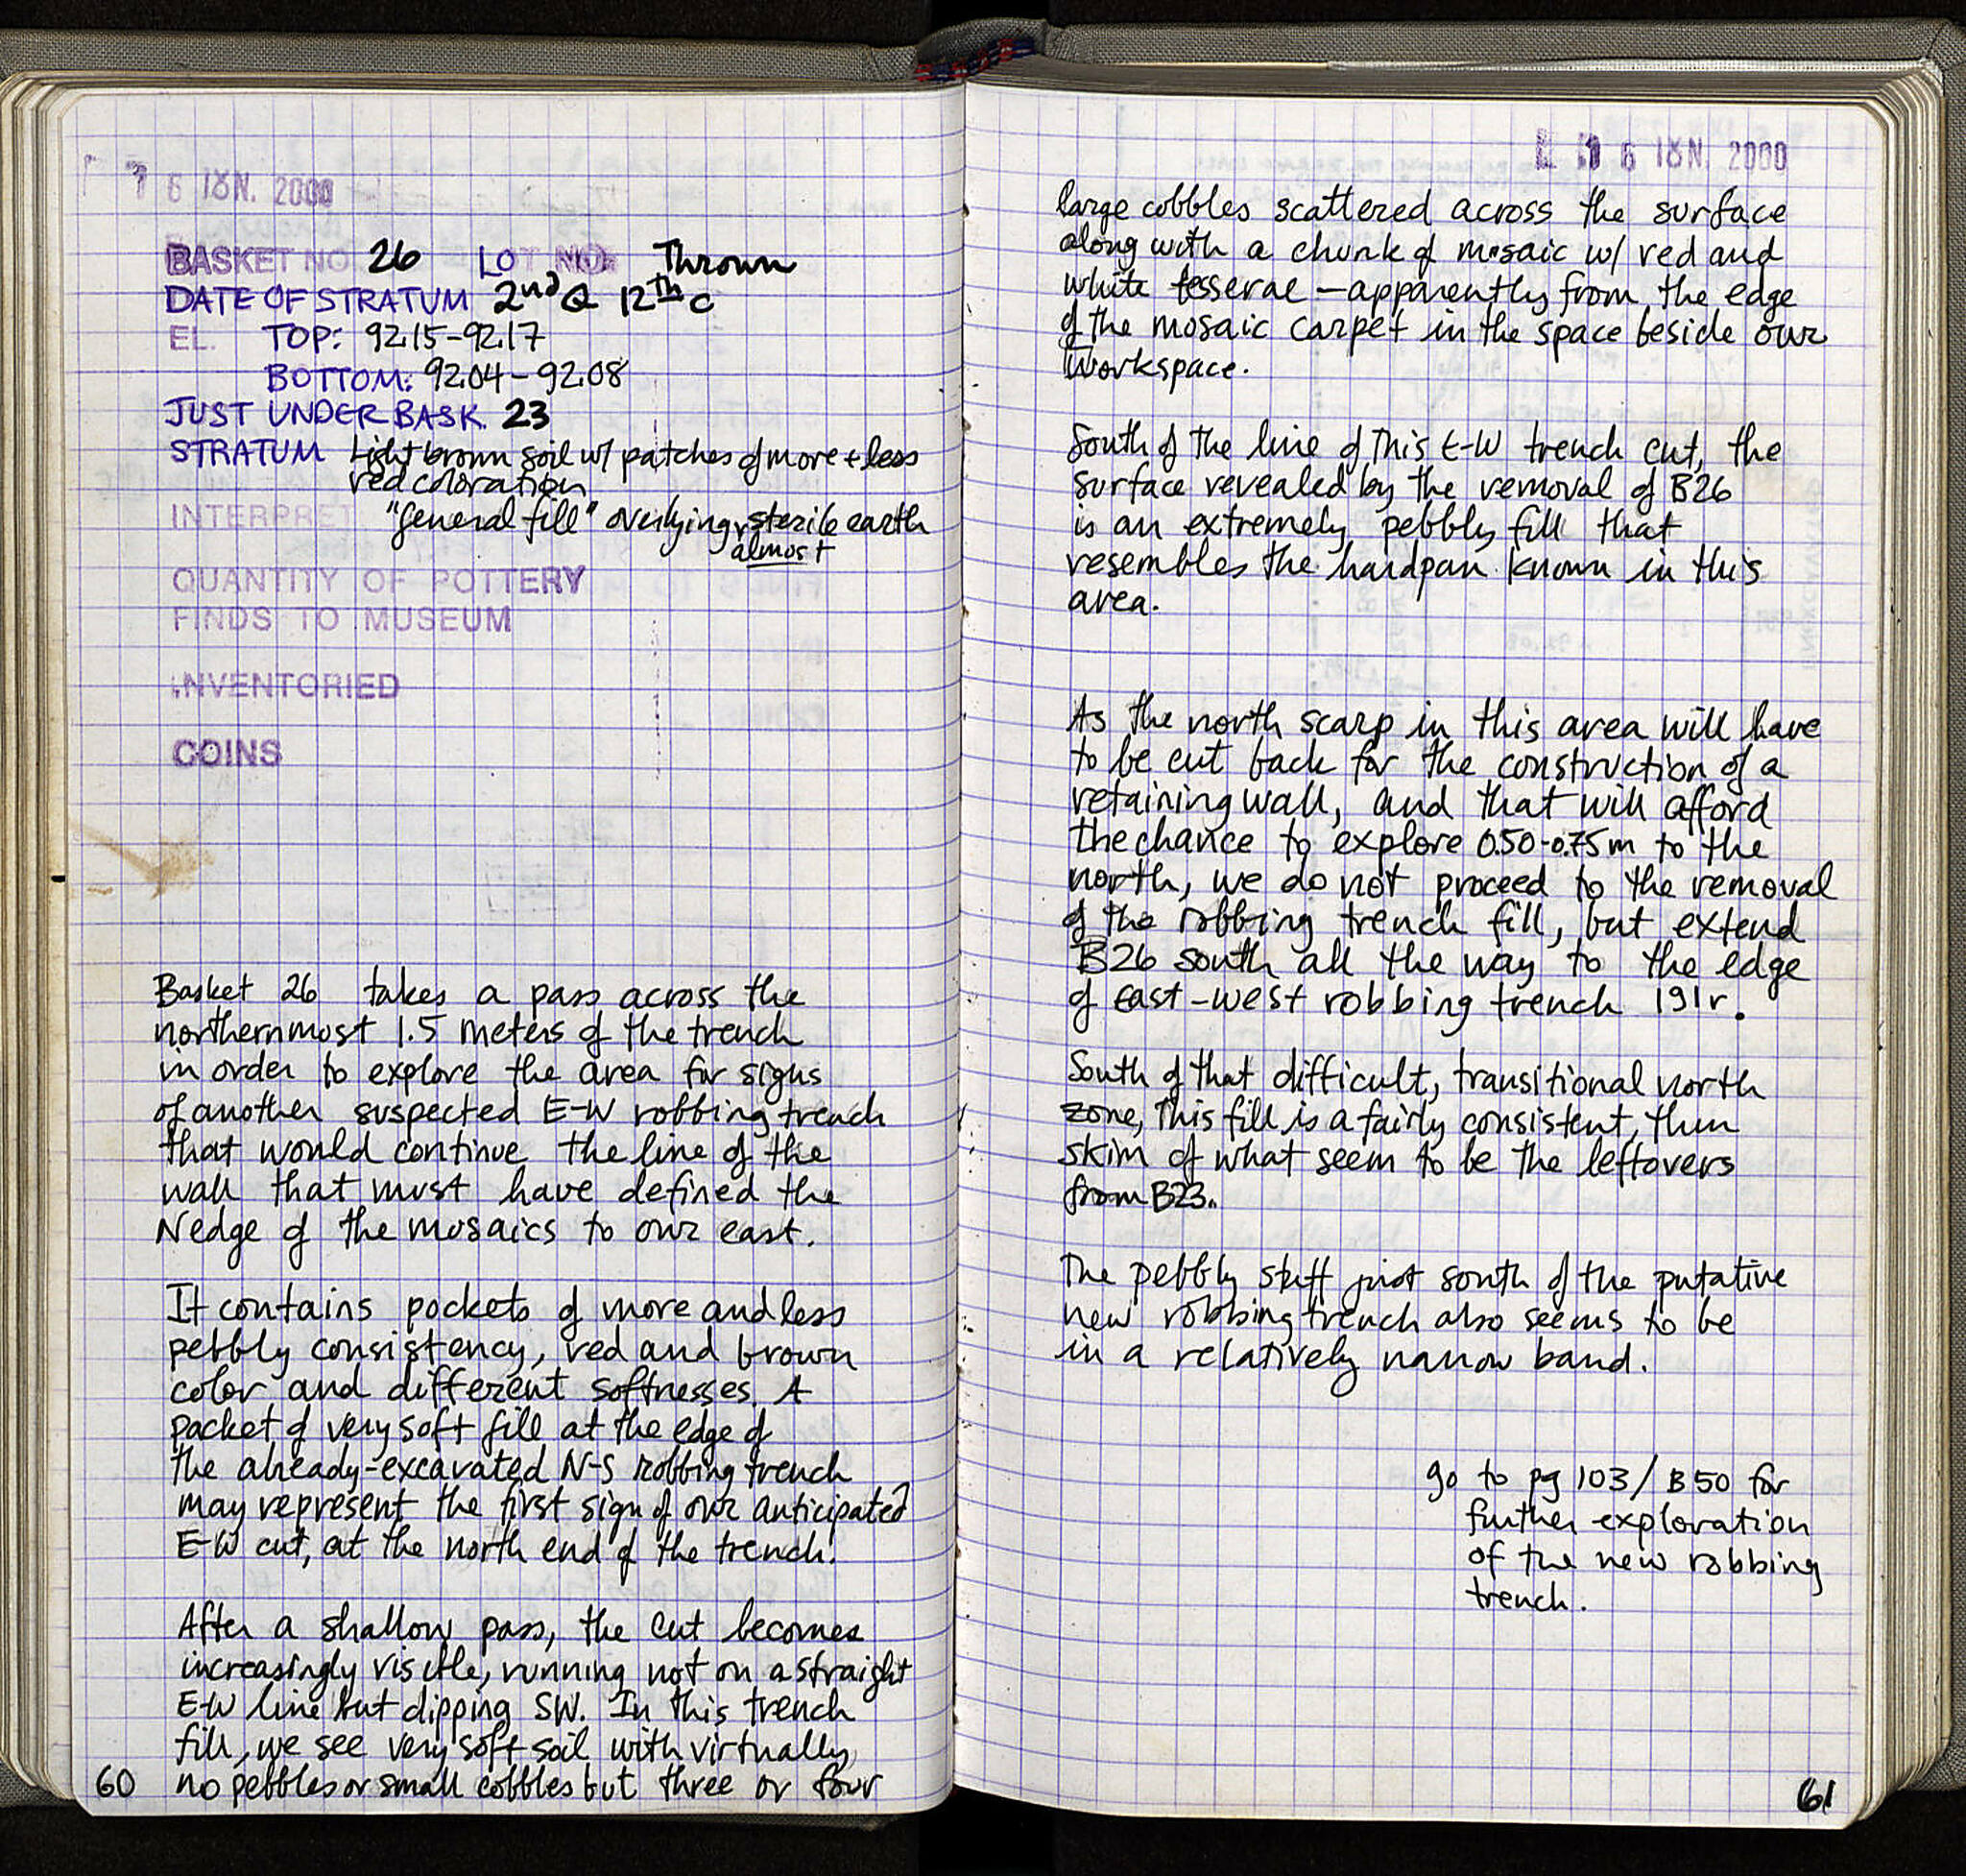 6 ΙΟΥΝ. 2000
BASKET NO. 26 LOT NO. Thrown
DATE OF STRATUM 2nd Q 12th C
EL. TOP: 92.15-92.17
BOTTOM: 92.04-92.08
JUST UNDER BASK. 23
STRATUM Light brown soil w/ patches of more + less
red coloration
INTERPRET "general fill" overlying almost sterile earth
QUANTITY OF POTTERY
FINDS TO MUSEUM
INVENTORIED
COINS
Basket 26 takes a pass across the
northernmost 1.5 meters of the trench
in order to explore the area for signs
of another suspected E-W robbing trench
that would continue the line of the
wall that must have defined the
N edge of the mosaics to our east.
It contains pockets of more and less
pebbly consistency, red and brown
color and different softnesses. A
packet of very soft fill at the edge of
the already-excavated N-S robbing trench
may represent the first sign of our anticipated
E-W cut, at the north end of the trench.
After a shallow pass, the cut becomes
increasingly visible, running not on a straight
E-W line but dipping SW. In this trench
fill, we see very soft soil with virtually
no pebbles or small cobbles but three or four
60
6 ΙΟΥΝ. 2000
large cobbles scattered across the surface
along with a chunk of mosaic w/ red and
white tesserae — apparently from the edge
of the mosaic carpet in the space beside our
workspace.
South of the line of this E-W trench cut, the
surface revealed by the removal of B26
is an extremely pebbly fill that
resembles the hardpan known in this
area.
As the north scarp in this area will have
to be cut back for the construction of a
retaining wall, and that will afford
the chance to explore 0.50-0.75m to the
north, we do not proceed to the removal
of the robbing trench fill, but extend
B26 south all the way to the edge
of east-west robbing trench 191r.
South of that difficult, transitional north
zone, this fill is a fairly consistent, thin
skim of what seem to be the leftovers
from B23.
The pebbly stuff just south of the putative
new robbing trench also seems to be
in a relatively narrow band.
go to pg 103/B50 for
further exploration
of the new robbing
trench.
61